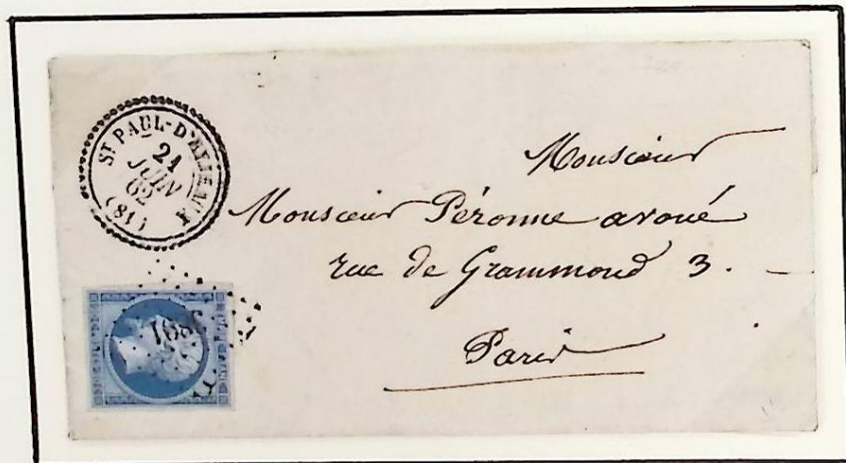 ST PAUL-D'EYJEAUX
21
JUIN
62
(81)
Monsieur
Monsieur Péronne avoué
rue de Grammond 3.
Paris